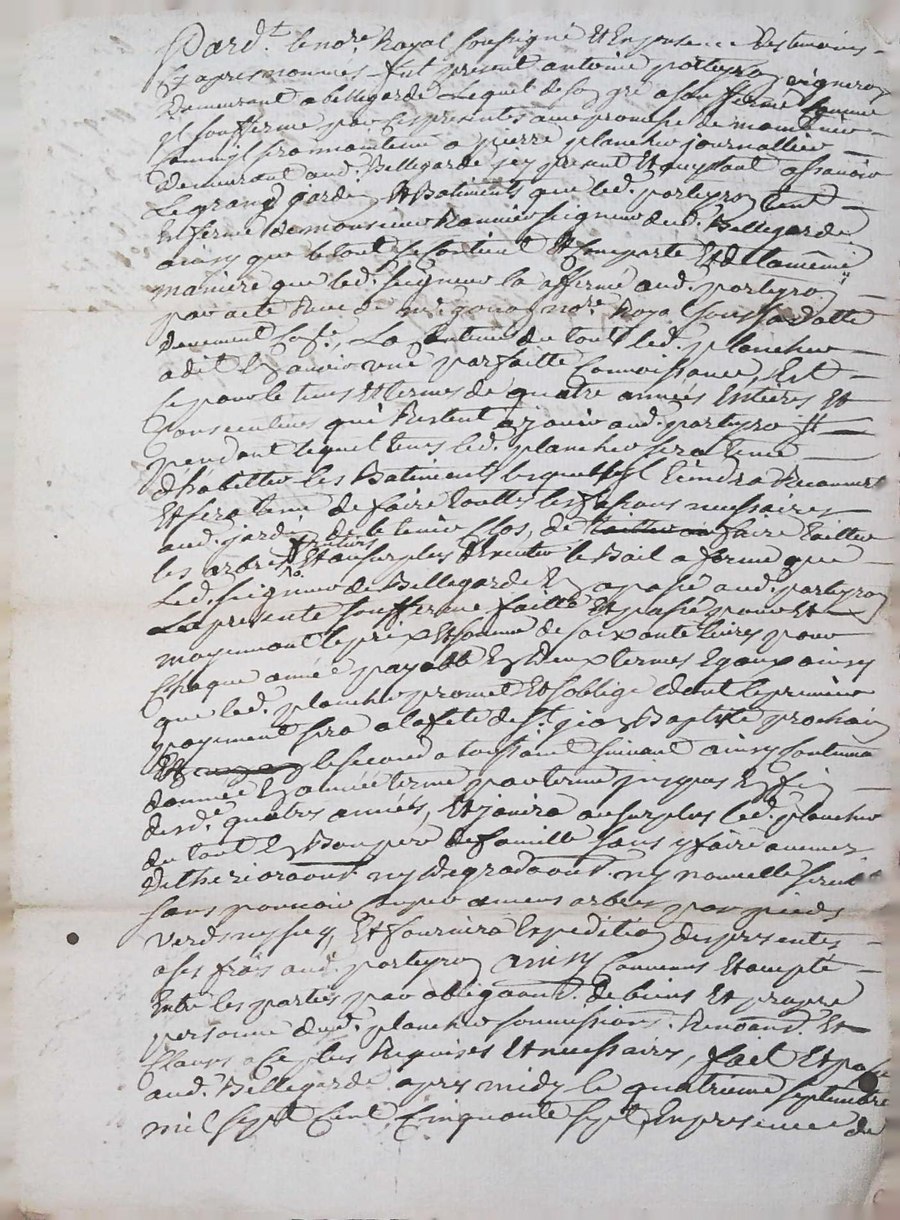 Pard.t le no.re Royal soussigné Et En presence des temoins
Cy apres nommés fut present antoine porteyro vigneron
Demeurant a bellegarde Lequel de son gré a sou ferme
et soufferme par Ces presentes avec promesse de maintenir
a pierre plancher journallier
Demeurant aud. Bellegarde icy present Et acceptant assavoir
Le grand jardin Et Batiments que led. porteyro tient
En ferme de monsieur seigneur dud. Bellegarde
ainsy que le tout se Contient Et Comporte Et de la meme
maniere que led. seigneur la affermé aud. porteyro
par acte Recu de me no.re Royal
La Contenue du tout led. plancher
a dit En avoir une parfaitte Connoissance, Est
Ce pour le tems Et termes de quatre années Entieres Et
Consecutives qui Restent a jouir aud. porteyro Et
pendant lequel tems led. plancher sera tenu
dhabitter les Batiments lesquels il
Et sera tenu de faire touttes les façons necessaires
aud. jardin, de le tenir Clos, de faire tailler
les arbres fruitiers Et au surplus dexecuter le Bail a ferme que
Led. seigneur de Bellegarde En a passé aud. porteyro
La presente soufferme faitte Et passée pour Et
moyennant le prix Et somme de soixante livres pour
Chaque année payable En deux termes Egaux ainsy
que led. plancher promet Et soblige dont le premier
payement sera a la fete de St. Baptiste prochain
Et le second a toussaint suivant ainsy Continuer
dannée En année terme par terme jusques En fin
desd. quatres années, Et jouira au surplus led. plancher
du tout En Bon pere de famille sans y faire aucunes
ny Degradaon. ny nouvelle
sans pouvoir Couper aucuns arbres par pieds
verds ny secq, Et fournira Expedition des presentes
a ses frais aud. porteyro ainsy Convenus Et accepté
Entre les parties par obligaon. de biens Et propre
personne dud. plancher soumissions. Renons. Et
Clauses a Ce plus Requises Et necessaires, fait Et passé
aud. Bellegarde apres midy le quatrieme septembre
mil sept Cent Cinquante sept, En presence de